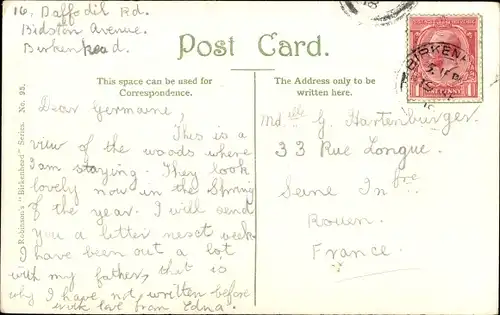 16, Daffodil Rd.
Bidston Avenue.
Birkenhead.
Post Card.
This space can be used for
Correspondence.
The Address only to be
written here.
Dear Germaine,
This is a
view of the woods where
I am staying. They look
lovely now in the Spring
of the year. I will send
you a letter next week.
I have been out a lot
with my father, that is
why I have not written before
with love from Edna.
Mdelle G. Hartenburger.
33 Rue Longue.
Seine Infre
Rouen.
France.
Robinson's "Birkenhead" Series. No. 95.
BIRKENH